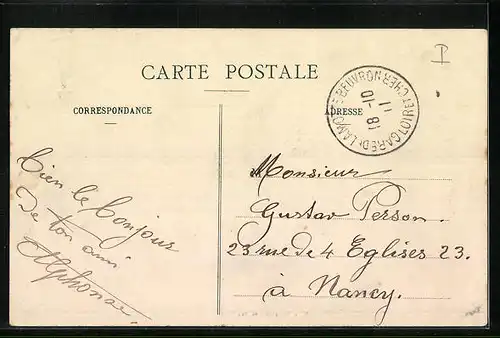 I
CARTE POSTALE
CORRESPONDANCE
ADRESSE
GARE DE LAMOTTE-BEUVRON LOIR ET CHER
18-10
11
Bien le bonjour
De ton ami
Alphonse
Monsieur
Gustav Person.
23 rue de 4 Eglises 23.
à Nancy.